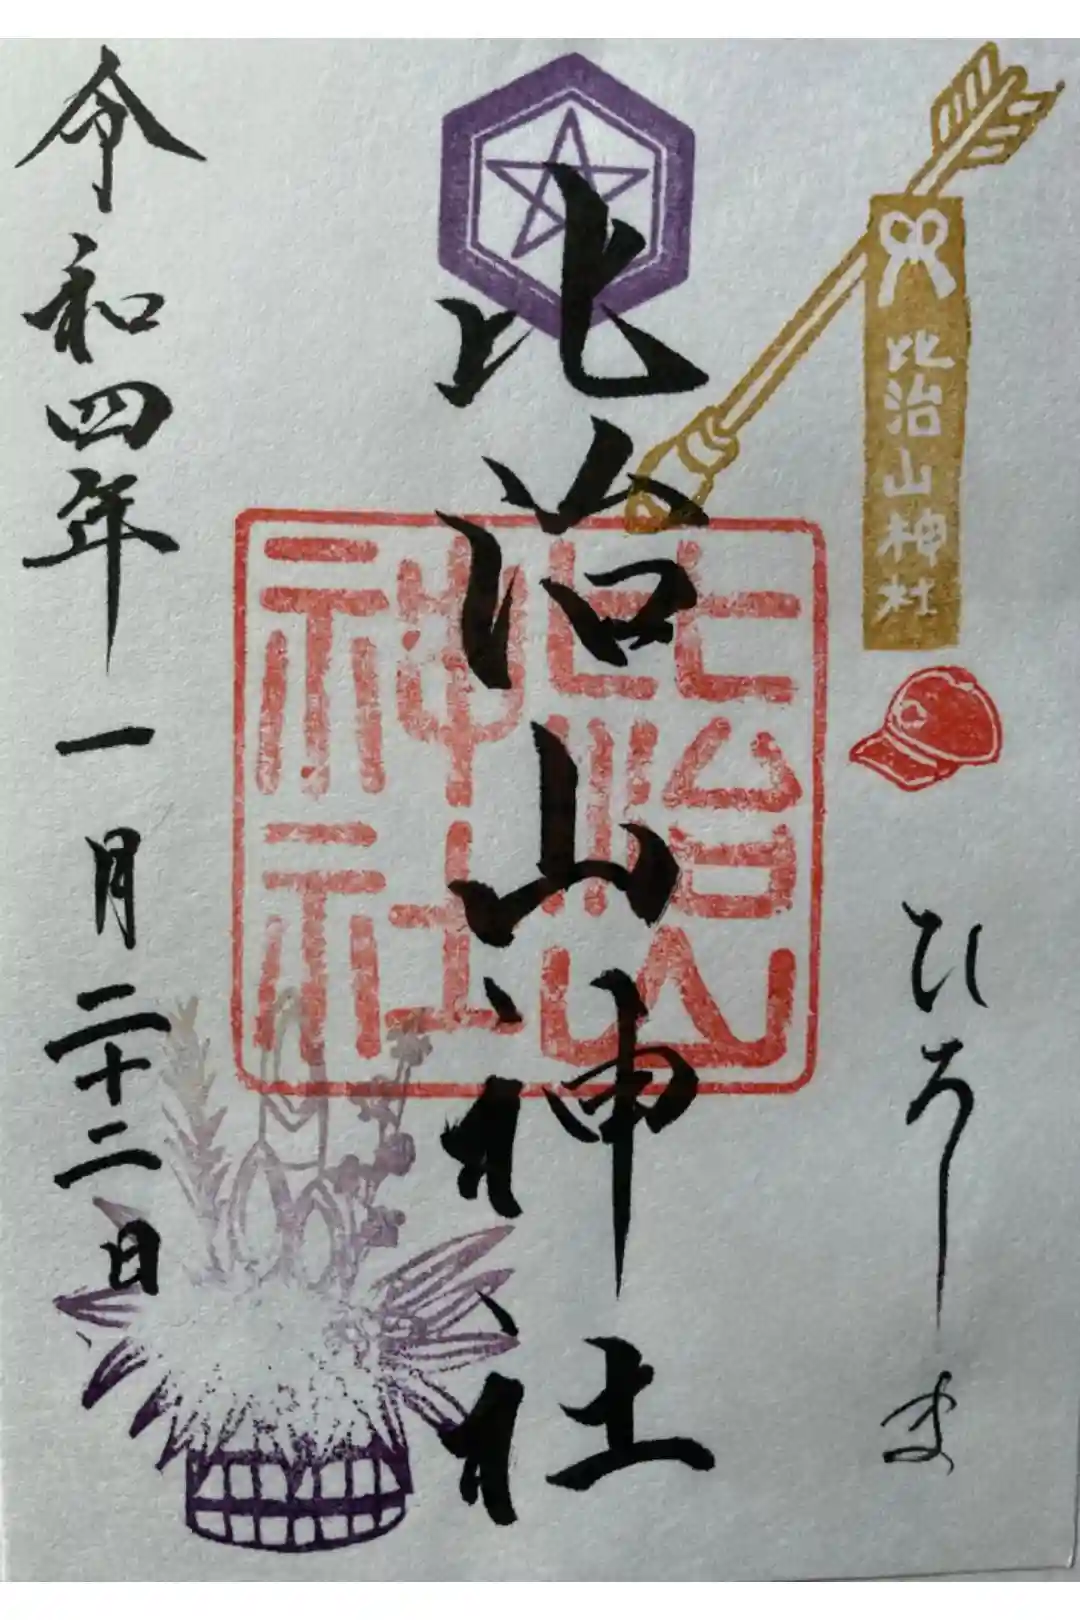 比治山神社
ひろしま
比治山神社
比治山
神社
令和四年一月二十二日